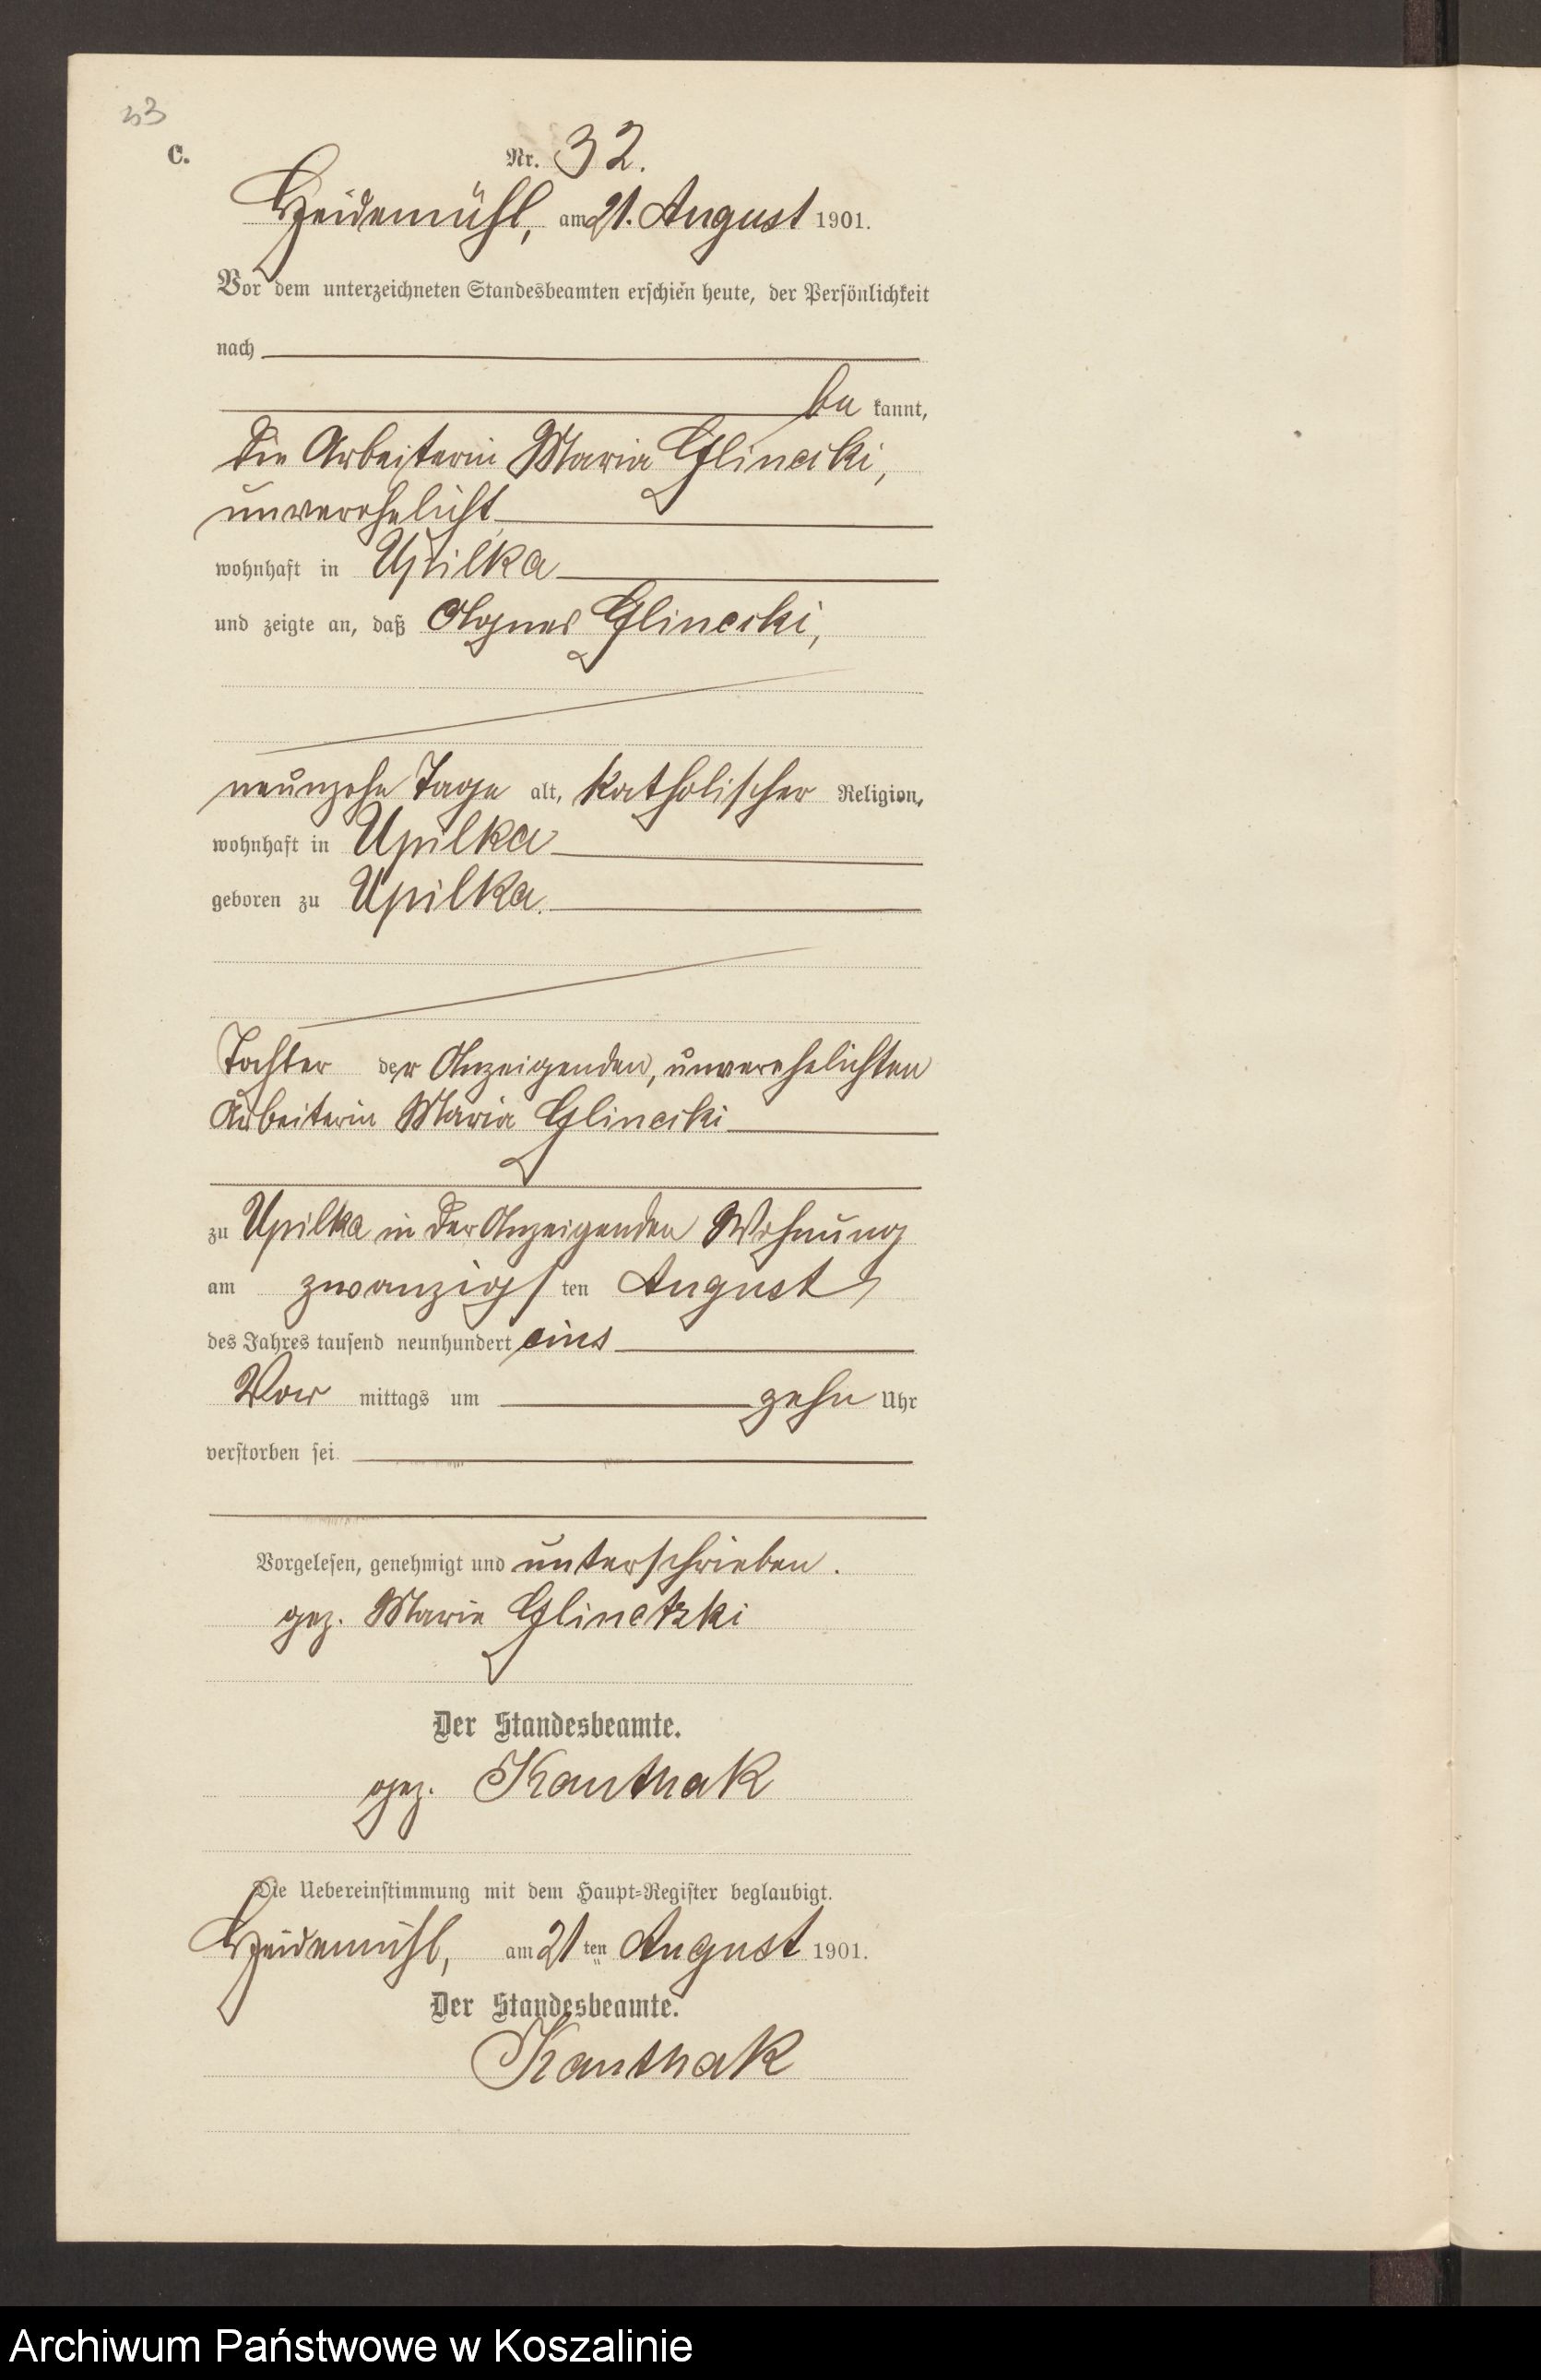 33
C.
Nr. 32.
Heidemühl, am 21. August 1901.
Vor dem unterzeichneten Standesbeamten erschien heute, der Persönlichkeit
nach
be kannt,
die Arbeiterin Maria Glincski,
unverehelicht
wohnhaft in Upilka
und zeigte an, daß Agnes Glincski,
neunzehn Tage alt, katholischer Religion,
wohnhaft in Upilka
geboren zu Upilka.
Tochter der Anzeigenden, unverehelichten
Arbeiterin Maria Glincski
zu Upilka in der Anzeigenden Wohnung
am zwanzigsten August
des Jahres tausend neunhundert eins
Vor mittags um zehn Uhr
verstorben sei
Vorgelesen, genehmigt und unterschrieben.
gez. Marie Glinetzki
Der Standesbeamte.
gez. Kanthak
Die Uebereinstimmung mit dem Haupt-Register beglaubigt.
Heidemühl, am 21 ten August 1901.
Der Standesbeamte.
Kanthak
Archiwum Państwowe w Koszalinie